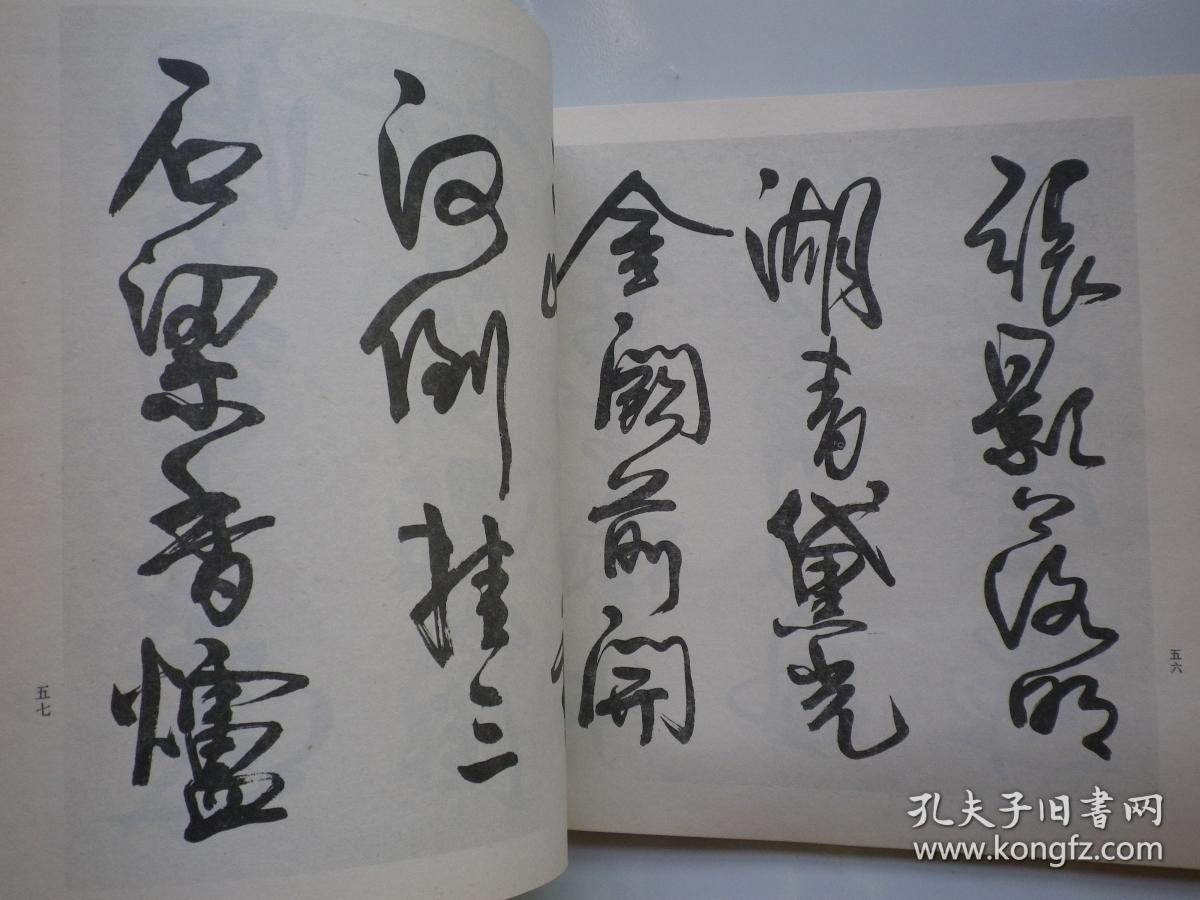 張影落明
湖青黛光
金闕前開
五六
河倒挂三
石梁香爐
五七
孔夫子旧书网
www.kongfz.com